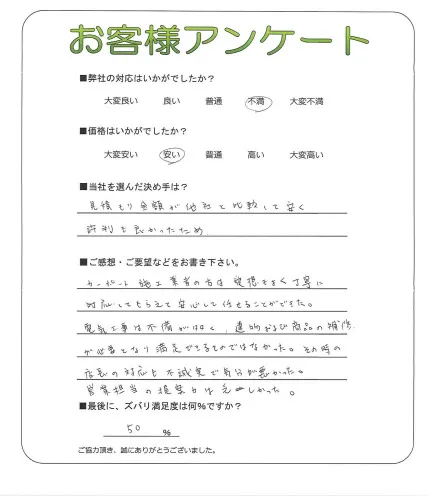 お客様アンケート
■弊社の対応はいかがでしたか？
大変良い 良い 普通 不満 大変不満
■価格はいかがでしたか？
大変安い 安い 普通 高い 大変高い
■当社を選んだ決め手は？
見積もり金額が他社と比較して安く
評判も良かったため
■ご感想・ご要望などをお書き下さい。
カーポート施工業者の方は愛想もよく丁寧に
対応してもらえて安心して任せることができた。
電気工事は不備が 、 および商品の補修
が必要となり満足できるものではなかった。その時の
店長の対応も不誠実で気分が悪かった。
営業担当の提案力は しかった。
■最後に、ズバリ満足度は何%ですか？
50 %
ご協力頂き、誠にありがとうございました。